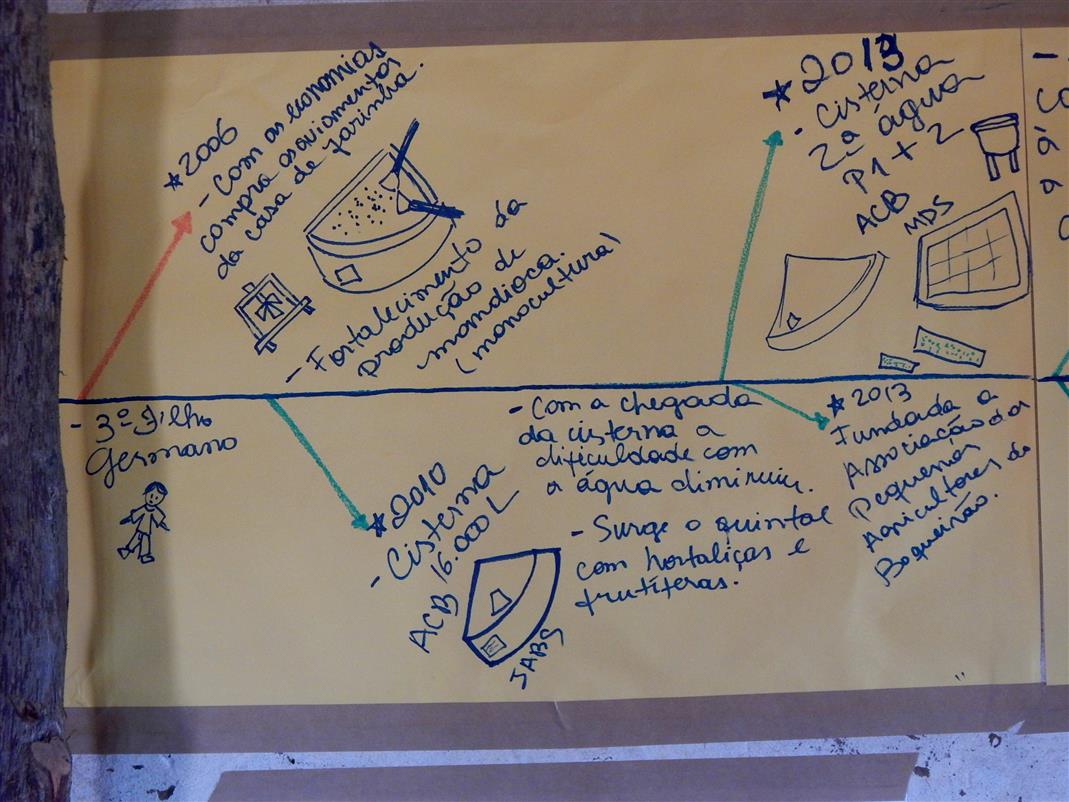 ★ 2006
- Com as economias
compra os aviamentos
da casa de farinha.
- Fortalecimento da
produção de
mandioca.
(monocultura)
- 3º Filho
Germano
★ 2010
- Cisterna
16.000 L
ACB
- Com a chegada
da cisterna a
dificuldade com
a água diminuiu.
- Surge o quintal
com hortaliças e
frutíferas.
★ 2013
- Cisterna
2ª água
P1 + 2
ACB
MDS
★ 2013
Fundada a
Associação dos
Pequenos
Agricultores do
Boqueirão.